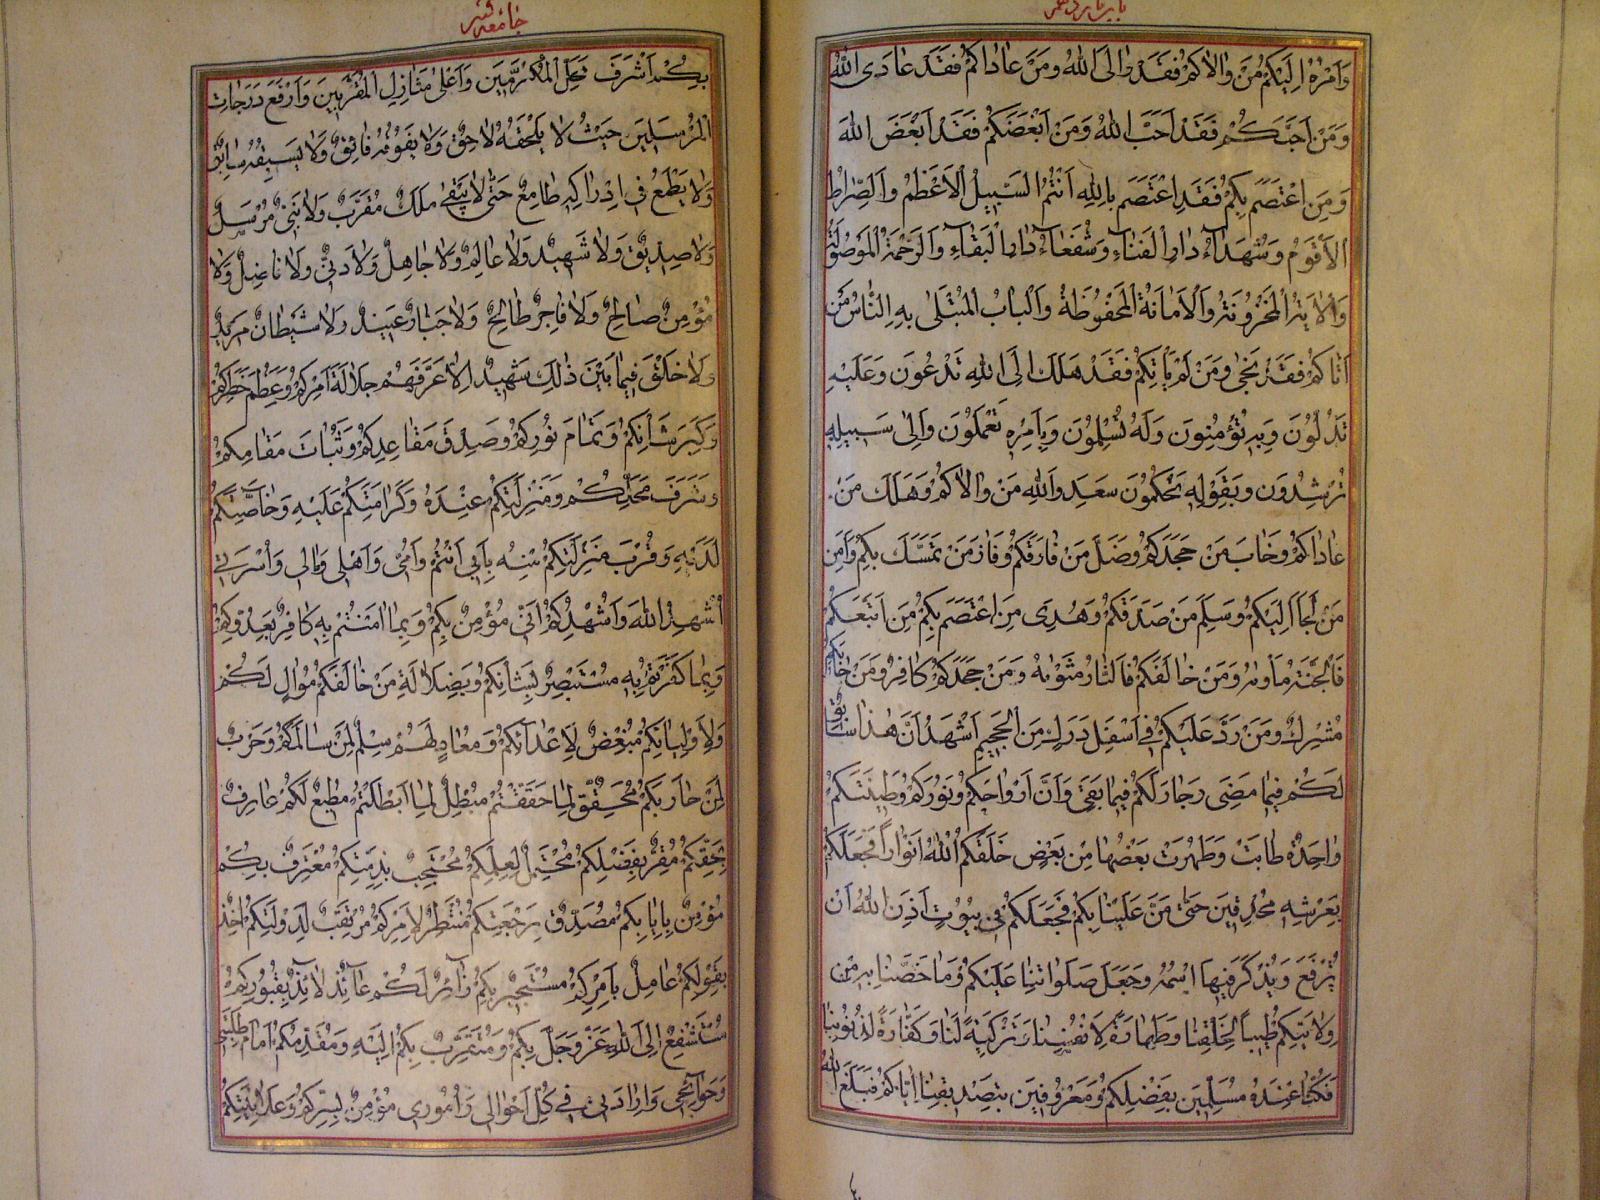 وَاَمْرُهُ اِلَيْكُمْ مَنْ وَالٰاكُمْ فَقَدْ وٰالَى اللّٰهَ وَمَنْ عٰادٰاكُمْ فَقَدْ عٰادَى اللّٰهَ
وَمَنْ اَحَبَّكُمْ فَقَدْ اَحَبَّ اللّٰهَ وَمَنْ اَبْغَضَكُمْ فَقَدْ اَبْغَضَ اللّٰهَ
وَمَنِ اعْتَصَمَ بِكُمْ فَقَدِ اعْتَصَمَ بِاللّٰهِ اَنْتُمُ السَّبِيلُ الْاَعْظَمُ وَالصِّرٰاطُ
الْاَقْوَمُ وَشُهَدٰاءُ دٰارِ الْفَنٰاءِ وَشُفَعٰاءُ دٰارِ الْبَقٰاءِ وَالرَّحْمَةُ الْمَوْصُولَةُ
وَالْاٰيَةُ الْمَخْزُونَةُ وَالْاَمٰانَةُ الْمَحْفُوظَةُ وَالْبٰابُ الْمُبْتَلٰى بِهِ النّٰاسُ مَنْ
اَتٰاكُمْ فَقَدْ نَجٰى وَمَنْ لَمْ يَأْتِكُمْ فَقَدْ هَلَكَ اِلَى اللّٰهِ تَدْعُونَ وَعَلَيْهِ
تَدُلُّونَ وَبِهِ تُؤْمِنُونَ وَلَهُ تُسَلِّمُونَ وَبِاَمْرِهِ تَعْمَلُونَ وَاِلٰى سَبِيلِهِ
تُرْشِدُونَ وَبِقَوْلِهِ تَحْكُمُونَ سَعِدَ وَاللّٰهِ مَنْ وٰالٰاكُمْ وَهَلَكَ مَنْ
عٰادٰاكُمْ وَخٰابَ مَنْ جَحَدَكُمْ وَضَلَّ مَنْ فٰارَقَكُمْ وَفٰازَ مَنْ تَمَسَّكَ بِكُمْ وَاَمِنَ
مَنْ لَجَاَ اِلَيْكُمْ وَسَلِمَ مَنْ صَدَّقَكُمْ وَهُدِىَ مَنِ اعْتَصَمَ بِكُمْ مَنِ اتَّبَعَكُمْ
فَالْجَنَّةُ مَأْوٰيهُ وَمَنْ خٰالَفَكُمْ فَالنّٰارُ مَثْوٰيهُ وَمَنْ جَحَدَكُمْ كٰافِرٌ وَمَنْ حٰارَبَكُمْ
مُشْرِكٌ وَمَنْ رَدَّ عَلَيْكُمْ فِي اَسْفَلِ دَرَكٍ مِنَ الْجَحِيمِ اَشْهَدُ اَنَّ هٰذٰا سٰابِقٌ
لَكُمْ فِيمٰا مَضٰى وَجٰارٍ لَكُمْ فِيمٰا بَقِىَ وَاَنَّ اَرْوٰاحَكُمْ وَنُورَكُمْ وَطِينَتَكُمْ
وٰاحِدَةٌ طٰابَتْ وَطَهُرَتْ بَعْضُهٰا مِنْ بَعْضٍ خَلَقَكُمُ اللّٰهُ اَنْوٰاراً فَجَعَلَكُمْ
بِعَرْشِهِ مُحْدِقِينَ حَتّٰى مَنَّ عَلَيْنٰا بِكُمْ فَجَعَلَكُمْ فِي بُيُوتٍ اَذِنَ اللّٰهُ اَنْ
تُرْفَعَ وَيُذْكَرَ فِيهَا اسْمُهُ وَجَعَلَ صَلَوٰاتِنٰا عَلَيْكُمْ وَمٰا خَصَّنٰا بِهِ مِنْ
وِلٰايَتِكُمْ طِيباً لِخَلْقِنٰا وَطَهٰارَةً لِاَنْفُسِنٰا وَتَزْكِيَةً لَنٰا وَكَفّٰارَةً لِذُنُوبِنٰا
فَكُنّٰا عِنْدَهُ مُسَلِّمِينَ بِفَضْلِكُمْ وَمَعْرُوفِينَ بِتَصْدِيقِنٰا اِيّٰاكُمْ فَبَلَغَ اللّٰهُ
جامعه كبير
بِكُمْ اَشْرَفَ مَحَلِّ الْمُكَرَّمِينَ وَاَعْلٰى مَنٰازِلِ الْمُقَرَّبِينَ وَاَرْفَعَ دَرَجٰاتِ
الْمُرْسَلِينَ حَيْثُ لٰا يَلْحَقُهُ لٰاحِقٌ وَلٰا يَفُوقُهُ فٰائِقٌ وَلٰا يَسْبِقُهُ سٰابِقٌ
وَلٰا يَطْمَعُ فِي اِدْرٰاكِهِ طٰامِعٌ حَتّٰى لٰا يَبْقٰى مَلَكٌ مُقَرَّبٌ وَلٰا نَبِيٌّ مُرْسَلٌ
وَلٰا صِدِّيقٌ وَلٰا شَهِيدٌ وَلٰا عٰالِمٌ وَلٰا جٰاهِلٌ وَلٰا دَنِيٌّ وَلٰا فٰاضِلٌ وَلٰا
مُؤْمِنٌ صٰالِحٌ وَلٰا فٰاجِرٌ طٰالِحٌ وَلٰا جَبّٰارٌ عَنِيدٌ وَلٰا شَيْطٰانٌ مَرِيدٌ
وَلٰا خَلْقٌ فِيمٰا بَيْنَ ذٰلِكَ شَهِيدٌ اِلّٰا عَرَّفَهُمْ جَلٰالَةَ اَمْرِكُمْ وَعِظَمَ خَطَرِكُمْ
وَكِبَرَ شَأْنِكُمْ وَتَمٰامَ نُورِكُمْ وَصِدْقَ مَقٰاعِدِكُمْ وَثَبٰاتَ مَقٰامِكُمْ
وَشَرَفَ مَحَلِّكُمْ وَمَنْزِلَتِكُمْ عِنْدَهُ وَكَرٰامَتَكُمْ عَلَيْهِ وَخٰاصَّتَكُمْ
لَدَيْهِ وَقُرْبَ مَنْزِلَتِكُمْ مِنْهُ بِاَبِي اَنْتُمْ وَاُمِّي وَاَهْلِي وَمٰالِي وَاُسْرَتِي
اُشْهِدُ اللّٰهَ وَاُشْهِدُكُمْ اَنِّي مُؤْمِنٌ بِكُمْ وَبِمٰا اٰمَنْتُمْ بِهِ كٰافِرٌ بِعَدُوِّكُمْ
وَبِمٰا كَفَرْتُمْ بِهِ مُسْتَبْصِرٌ بِشَأْنِكُمْ وَبِضَلٰالَةِ مَنْ خٰالَفَكُمْ مُوٰالٍ لَكُمْ
وَلِاَوْلِيٰائِكُمْ مُبْغِضٌ لِاَعْدٰائِكُمْ وَمُعٰادٍ لَهُمْ سِلْمٌ لِمَنْ سٰالَمَكُمْ وَحَرْبٌ
لِمَنْ حٰارَبَكُمْ مُحَقِّقٌ لِمٰا حَقَّقْتُمْ مُبْطِلٌ لِمٰا اَبْطَلْتُمْ مُطِيعٌ لَكُمْ عٰارِفٌ
بِحَقِّكُمْ مُقِرٌّ بِفَضْلِكُمْ مُحْتَمِلٌ لِعِلْمِكُمْ مُحْتَجِبٌ بِذِمَّتِكُمْ مُعْتَرِفٌ بِكُمْ
مُؤْمِنٌ بِاِيٰابِكُمْ مُصَدِّقٌ بِرَجْعَتِكُمْ مُنْتَظِرٌ لِاَمْرِكُمْ مُرْتَقِبٌ لِدَوْلَتِكُمْ اٰخِذٌ
بِقَوْلِكُمْ عٰامِلٌ بِاَمْرِكُمْ مُسْتَجِيرٌ بِكُمْ زٰائِرٌ لَكُمْ عٰائِذٌ لٰائِذٌ بِقُبُورِكُمْ
مُسْتَشْفِعٌ اِلَى اللّٰهِ عَزَّ وَجَلَّ بِكُمْ وَمُتَقَرِّبٌ بِكُمْ اِلَيْهِ وَمُقَدِّمُكُمْ اَمٰامَ طَلِبَتِي
وَحَوٰائِجِي وَاِرٰادَتِي فِي كُلِّ اَحْوٰالِي وَاُمُورِي مُؤْمِنٌ بِسِرِّكُمْ وَعَلٰانِيَتِكُمْ